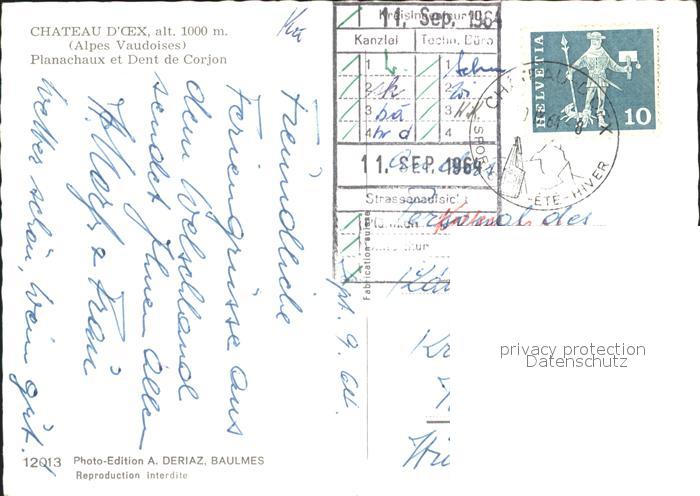 CHATEAU D'ŒX, alt. 1000 m.
(Alpes Vaudoises)
Planachaux et Dent de Corjon
Freundliche
Feriengrüsse aus
dem Welschland
sendet Ihnen allen
A. Merz & Frau
Wetter schön, Wein gut!
12013 Photo-Edition A. DERIAZ, BAULMES
Reproduction interdite
Fabrication suisse
11. Sep. 1964
Kreisingenieur
Kanzlei Techn. Büro
1 1
2 2
3 3
4 4
11. SEP. 1964
Strassenaufsicht
HELVETIA
10
CHATEAU-D'ŒX
SPORTS - ÉTÉ-HIVER
Personal des
privacy protection
Datenschutz